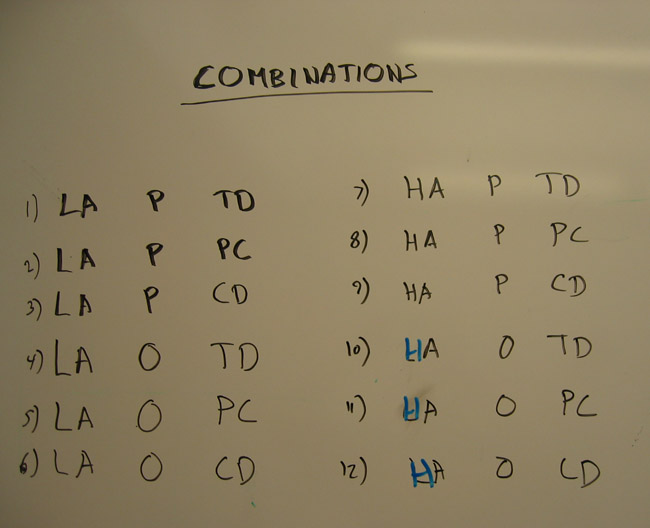 COMBINATIONS
1) LA P TD
2) LA P PC
3) LA P CD
4) LA O TD
5) LA O PC
6) LA O CD
7) HA P TD
8) HA P PC
9) HA P CD
10) HA O TD
11) HA O PC
12) HA O CD